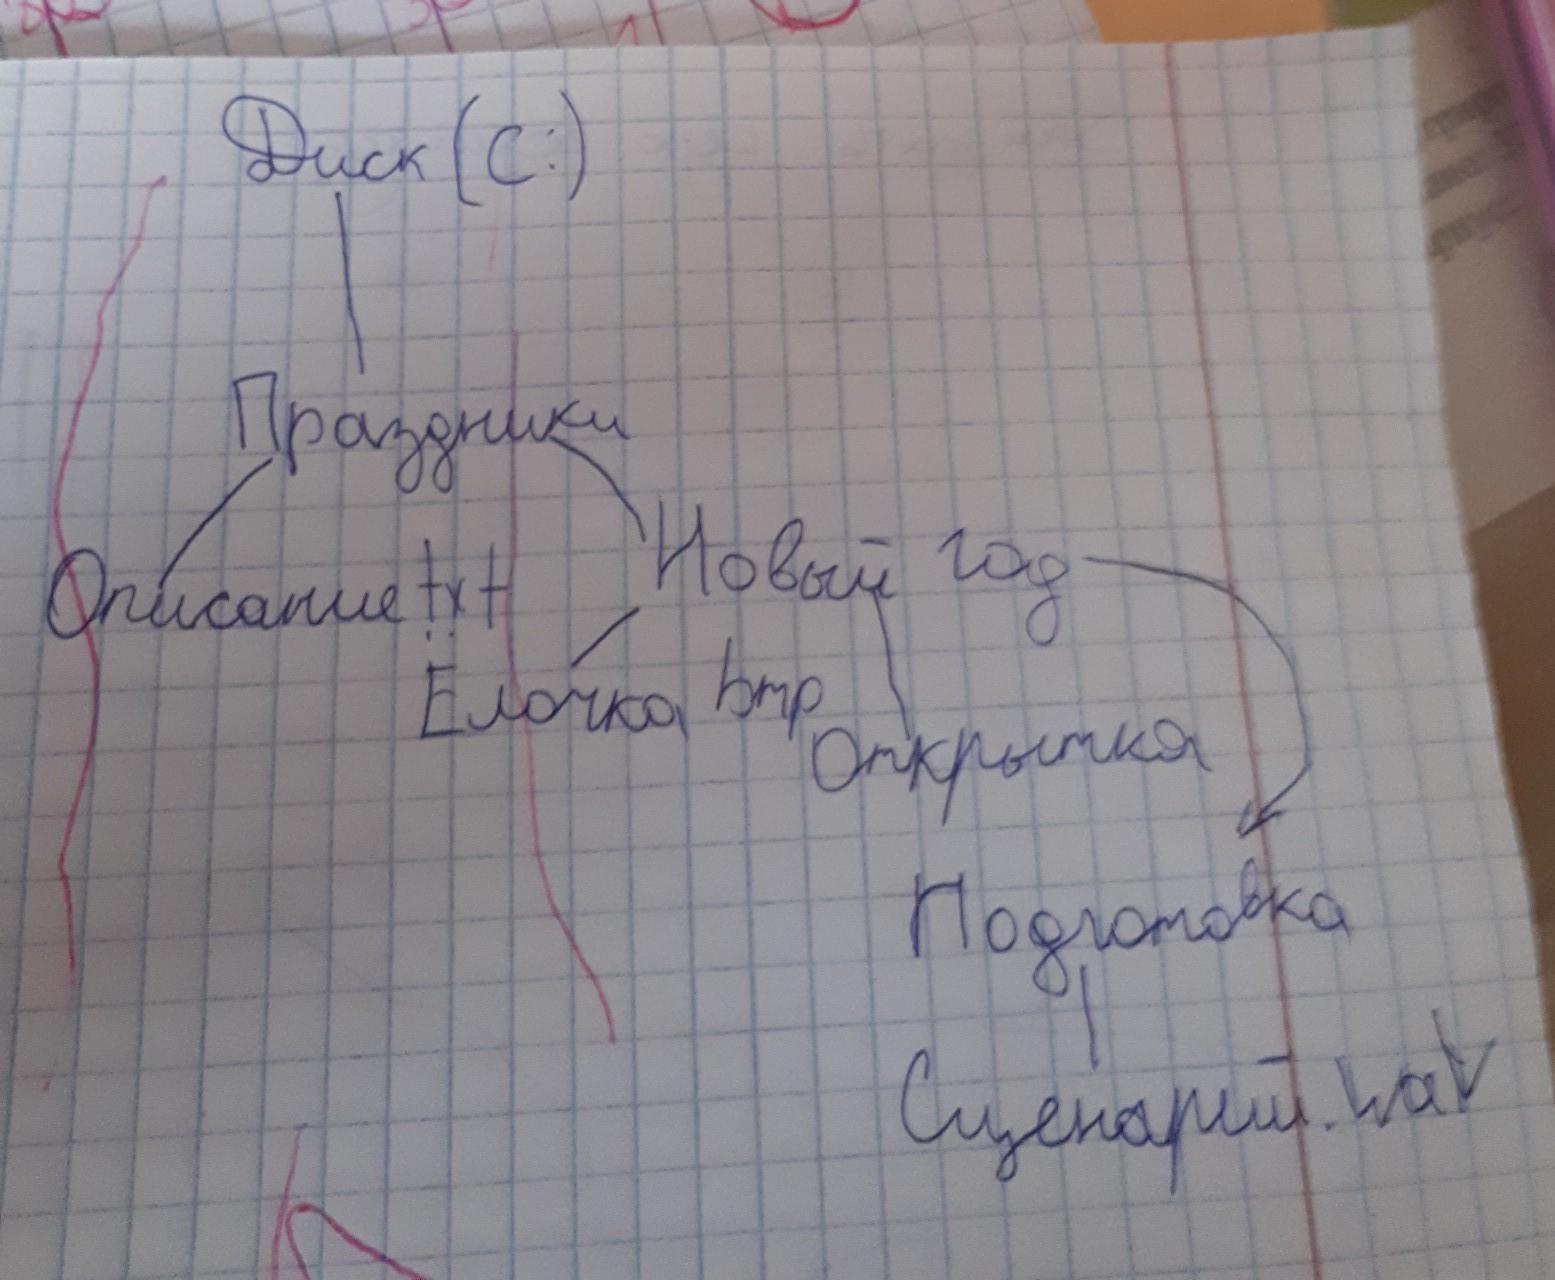 Диск (C:)
Праздники
Описание txt
Новый год
Ёлочка bmp
Открытка
Подготовка
Сценарий.wav